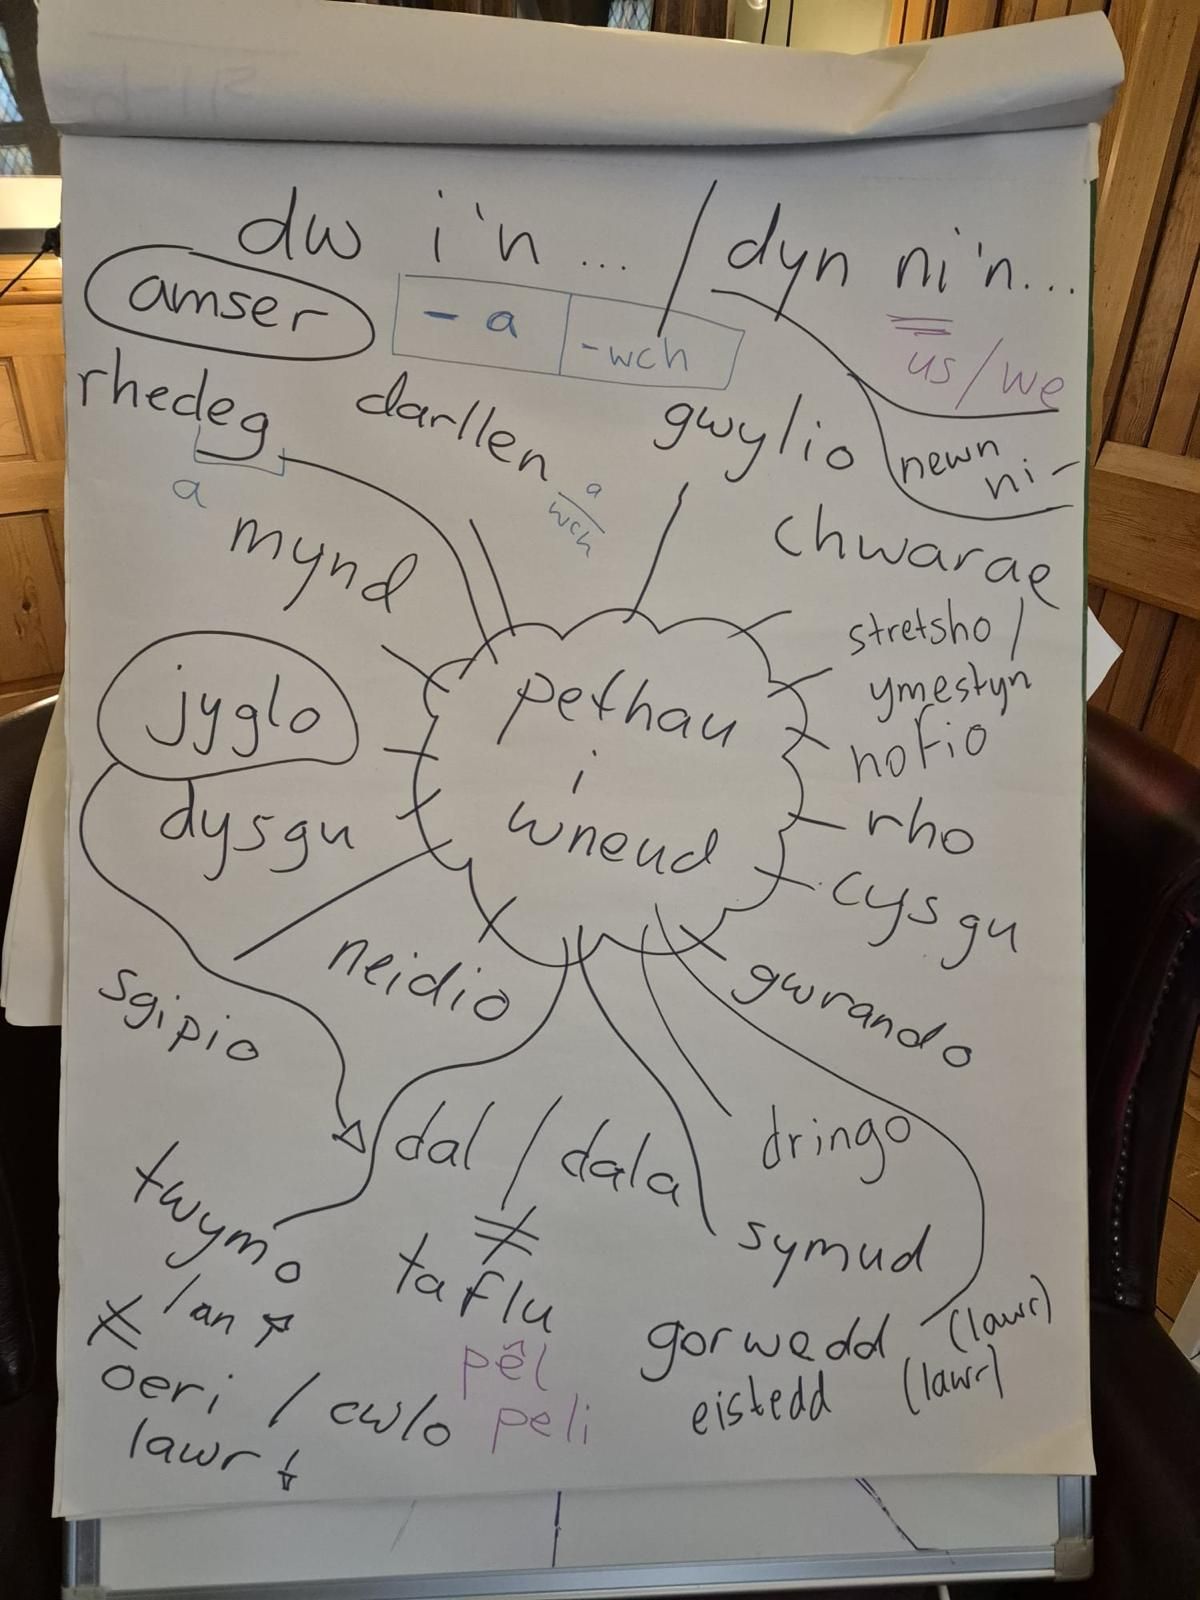 dw i'n ... / dyn ni'n...
us/we
newn
ni -
amser
- a | -wch
rhedeg
a
darllen
a
wch
gwylio
mynd
chwarae
stretsho /
ymestyn
jyglo
pethau
i
wneud
nofio
dysgu
rho
cysgu
neidio
gwrando
sgipio
dal / dala
dringo
twymo
lan
≠
taflu
symud
≠
oeri / cwlo
lawr
pêl
peli
gorwedd (lawr)
eistedd (lawr)